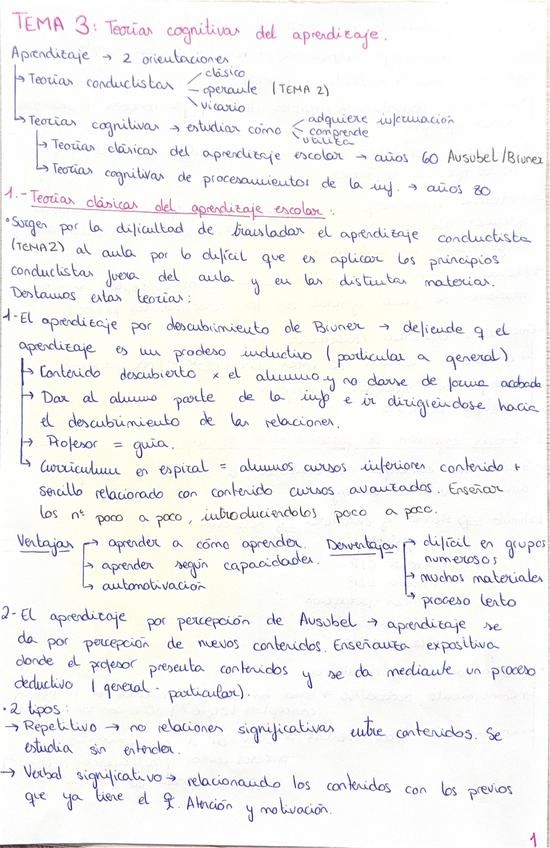 TEMA 3: Teorías cognitivas del aprendizaje.
Aprendizaje → 2 orientaciones
→ Teorías conductistas – clásico
– operante (TEMA 2)
– vicario
→ Teorías cognitivas → estudiar cómo – adquiere información
– comprende
– utiliza
→ Teorías clásicas del aprendizaje escolar → años 60 Ausubel/Bruner
→ Teorías cognitivas de procesamientos de la inf. → años 80
1.- Teorías clásicas del aprendizaje escolar:
•Surgen por la dificultad de trasladar el aprendizaje conductista
(TEMA2) al aula por lo difícil que es aplicar los principios
conductistas fuera del aula y en las distintas materias.
Destamos estas teorías:
1-El aprendizaje por descubrimiento de Bruner → defiende q el
aprendizaje es un prodeso inductivo (particular a general)
→ Contenido descubierto x el alumno y no darse de forma acabada
→ Dar al alumno parte de la infº e ir dirigiéndose hacia
el descubrimiento de las relaciones.
→ Profesor = guía.
→ Curriculum en espiral = alumnos cursos inferiores contenido +
sencillo relacionado con contenido cursos avanzados. Enseñar
los nº poco a poco, introduciéndolos poco a poco.
Ventajas → aprender a cómo aprender.
→ aprender según capacidades.
→ automotivación
Desventajas → difícil en grupos
numerosos
→ muchos materiales
→ proceso lento
2- El aprendizaje por percepción de Ausubel → aprendizaje se
da por percepción de nuevos contenidos. Enseñanza expositiva
donde el profesor presenta contenidos y se da mediante un proceso
deductivo (general - particular).
· 2 tipos:
→ Repetitivo → no relaciones significativas entre contenidos. Se
estudia sin entender.
→ Verbal significativo → relacionando los contenidos con los previos
que ya tiene el. Atención y motivación.
1